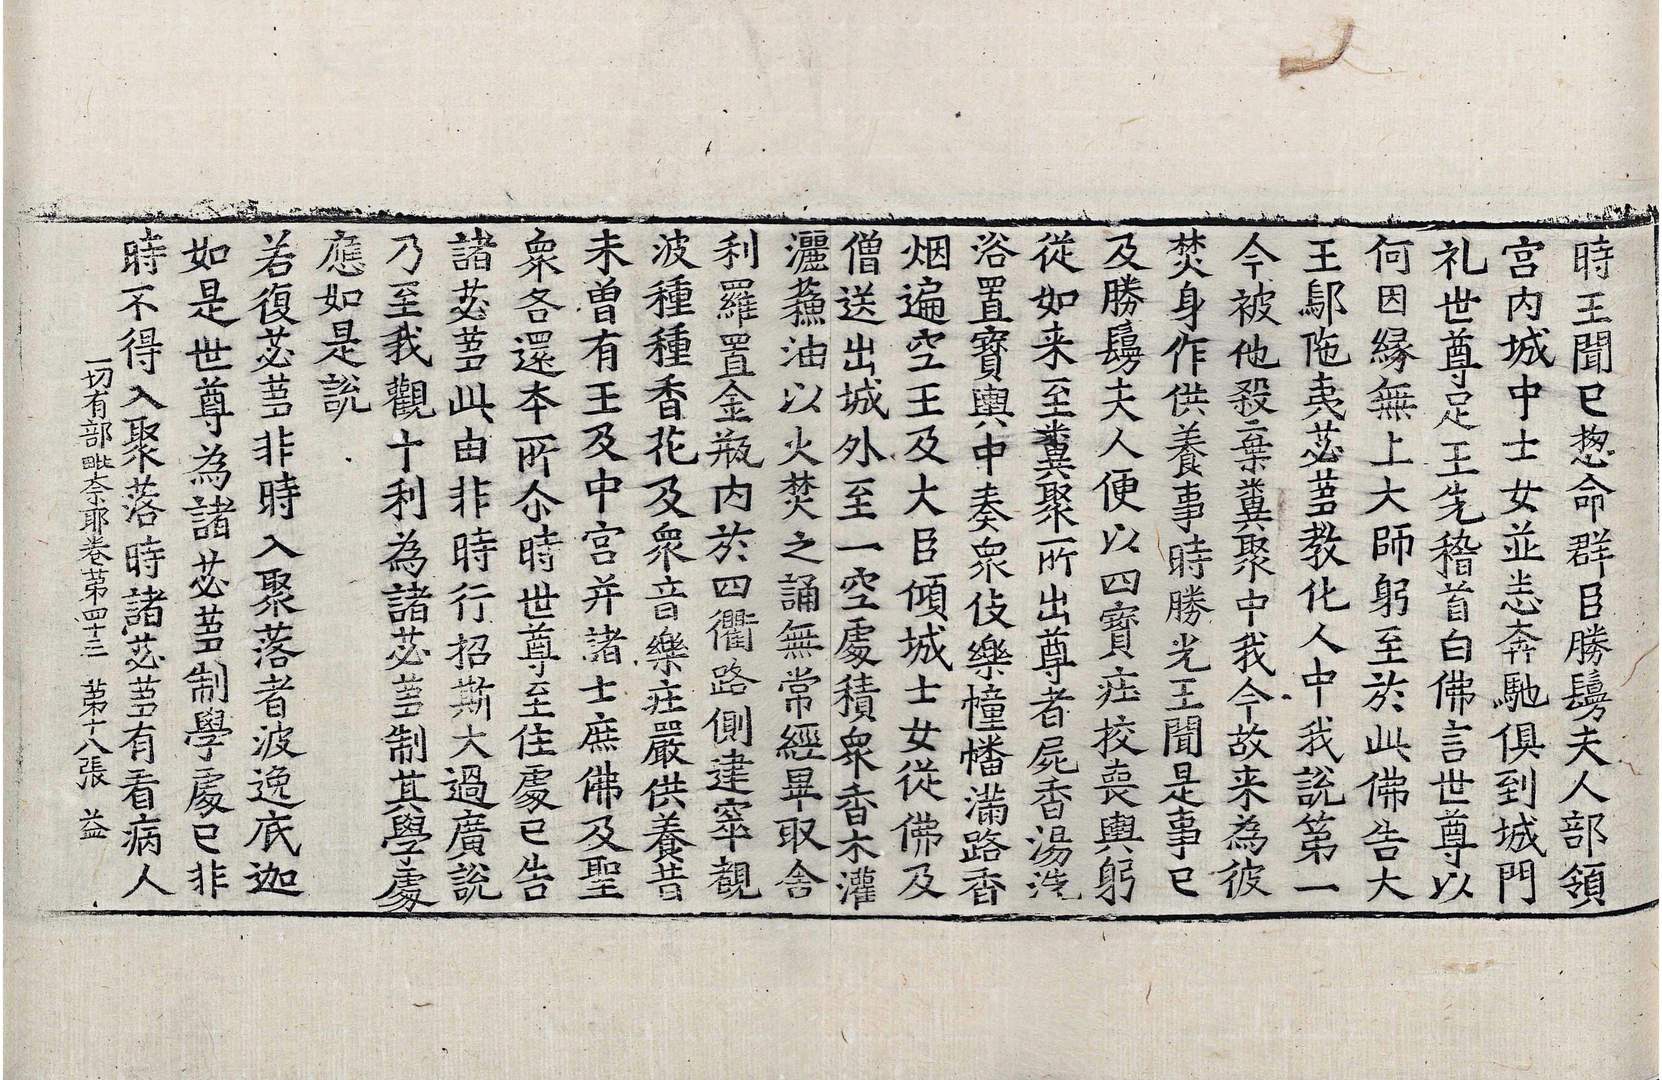 時王聞已惣命群臣勝鬘夫人部領
宮内城中士女並悉奔馳俱到城門
礼世尊足王先稽首白佛言世尊以
何因緣無上大師躬至於此佛告大
王鄔陁夷苾芻教化人中我說第一
今被他殺棄糞聚中我今故来為彼
焚身作供養事時勝光王聞是事已
及勝鬘夫人便以四寶莊校喪輿躬
從如来至糞聚所出尊者屍香湯洗
浴置寶輿中奏衆伎樂幢幡滿路香
烟遍空王及大臣傾城士女從佛及
僧送出城外至一空處積衆香木灌
灑蘓油以火焚之誦無常經畢取舍
利羅置金瓶内於四衢路側建窣覩
波種種香花及衆音樂莊嚴供養昔
未曽有王及中宮并諸士庶佛及聖
衆各還本所尒時世尊至住處已告
諸苾芻此由非時行招斯大過廣說
乃至我觀十利為諸苾芻制其學處
應如是說
若復苾芻非時入聚落者波逸底迦
如是世尊為諸苾芻制學處已非
時不得入聚落時諸苾芻有看病人
一切有部毗奈耶卷第四十三 第十八張 益